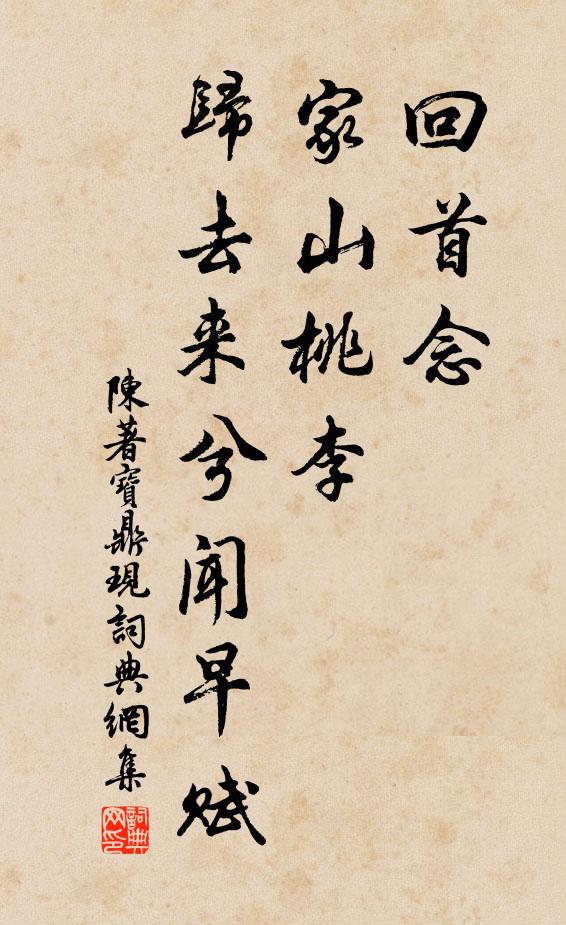 回首念
家山桃李
歸去来兮闻早赋
陳著寶鼎現詞典網集
詞典网印